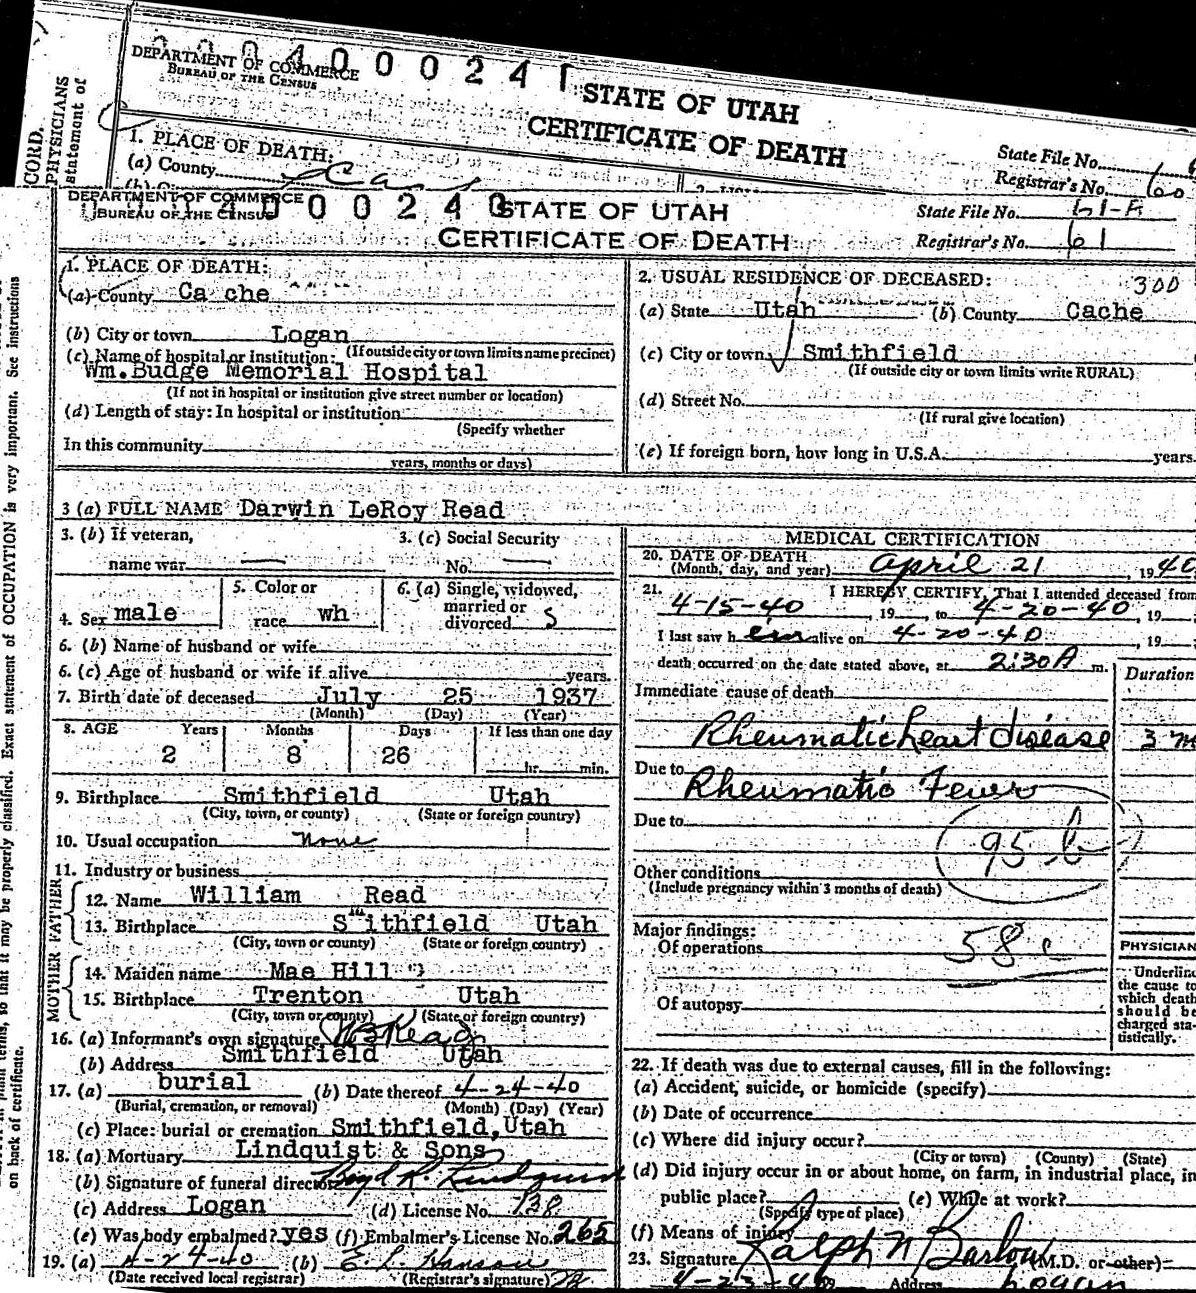 DEPARTMENT OF COMMERCE
BUREAU OF THE CENSUS
0 0 0 2 4 1
STATE OF UTAH
CERTIFICATE OF DEATH
State File No.
Registrar's No. 60
1. PLACE OF DEATH:
(a) County
CORD.
PHYSICIANS
statement of
DEPARTMENT OF COMMERCE
BUREAU OF THE CENSUS
0 0 2 4 0
STATE OF UTAH
CERTIFICATE OF DEATH
State File No. 61-A
Registrar's No. 61
1. PLACE OF DEATH:
(a) County Ca che
(b) City or town Logan
(If outside city or town limits name precinct)
(c) Name of hospital or institution:
Wm. Budge Memorial Hospital
(If not in hospital or institution give street number or location)
(d) Length of stay: In hospital or institution
(Specify whether
In this community
years, months or days)
2. USUAL RESIDENCE OF DECEASED: 300
(a) State Utah (b) County Cache
(c) City or town Smithfield
(If outside city or town limits write RURAL)
(d) Street No.
(If rural give location)
(e) If foreign born, how long in U.S.A. years.
3 (a) FULL NAME Darwin LeRoy Read
3. (b) If veteran, name war
3. (c) Social Security No.
4. Sex male
5. Color or race wh
6. (a) Single, widowed, married or divorced S
6. (b) Name of husband or wife
6. (c) Age of husband or wife if alive years.
7. Birth date of deceased July 25 1937
(Month) (Day) (Year)
8. AGE Years Months Days If less than one day
2 8 26 hr. min.
9. Birthplace Smithfield Utah
(City, town, or county) (State or foreign country)
10. Usual occupation None
11. Industry or business
FATHER
12. Name William Read
13. Birthplace Smithfield Utah
(City, town or county) (State or foreign country)
MOTHER
14. Maiden name Mae Hill
15. Birthplace Trenton Utah
(City, town or county) (State or foreign country)
16. (a) Informant's own signature Read
(b) Address Smithfield Utah
17. (a) burial (b) Date thereof 4-24-40
(Burial, cremation, or removal) (Month) (Day) (Year)
(c) Place: burial or cremation Smithfield, Utah
18. (a) Mortuary Lindquist & Sons
(b) Signature of funeral director
(c) Address Logan (d) License No. 138
(e) Was body embalmed? yes (f) Embalmer's License No. 265
19. (a) 4-24-40 (b)
(Date received local registrar) (Registrar's signature)
MEDICAL CERTIFICATION
20. DATE OF DEATH
(Month, day, and year) April 21, 1940
21. I HEREBY CERTIFY, That I attended deceased from
4-15-40, 19 , to 4-20-40, 19
I last saw him alive on 4-20-40, 19
death occurred on the date stated above, at 2:30A m.
Duration
Immediate cause of death
Rheumatic heart disease 3
Due to Rheumatic Fever
Due to
95 b
Other conditions
(Include pregnancy within 3 months of death)
Major findings:
Of operations
58 c
Of autopsy
PHYSICIAN
Underline
the cause to
which death
should be
charged sta-
tistically.
22. If death was due to external causes, fill in the following:
(a) Accident, suicide, or homicide (specify)
(b) Date of occurrence
(c) Where did injury occur?
(City or town) (County) (State)
(d) Did injury occur in or about home, on farm, in industrial place, in
public place? (e) While at work?
(Specify type of place)
(f) Means of injury
23. Signature Ralph N Barlow (M.D. or other)
4-23-40 Address Logan
so that it may be properly classified. Exact statement of OCCUPATION is very important. See instructions
on back of certificate.